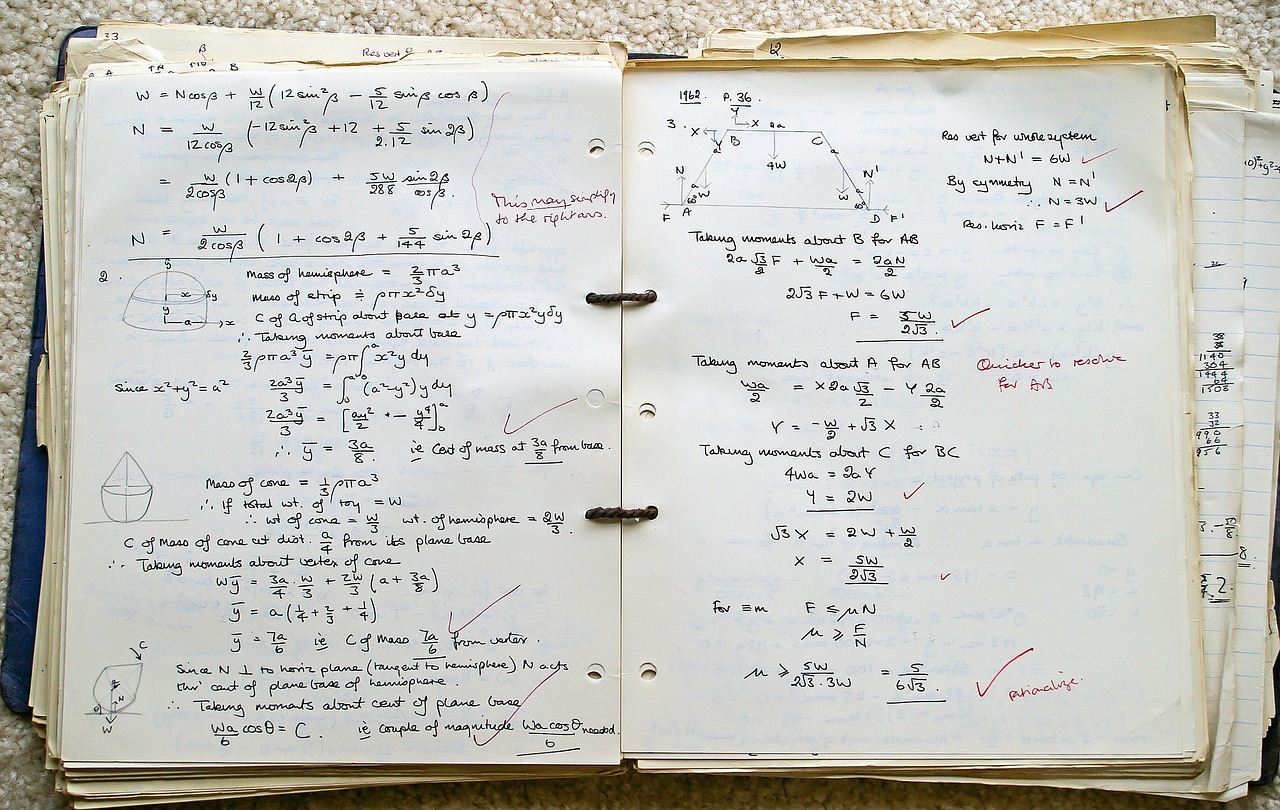 33.
β
Res vert
W = N cos β + W/12 (12 sin²β − 5/12 sin β cos β)
N = W/12cosβ (−12 sin²β + 12 + 5/2.12 sin 2β)
= W/2cosβ (1 + cos2β) + 5W/288 sin2β/cosβ.
This may simplify
to the right ans.
N = W/2cosβ (1 + cos 2β + 5/144 sin 2β)
2.
y x δy
y a x
Mass of hemisphere = 2/3 πa³
Mass of strip ≑ ρπx²δy
C of G of strip about base at y = ρπx²yδy
∴ Taking moments about base
2/3 ρπa³ȳ = ρπ∫₀ᵃ x²y dy
Since x²+y²=a² 2a³ȳ/3 = ∫₀ᵃ (a²−y²)y dy
2a³ȳ/3 = [ay²/2 − y⁴/4]₀ᵃ
∴ ȳ = 3a/8 ie Cent of mass at 3a/8 from base.
Mass of cone = 1/3 ρπa³
∴ If total wt. of toy = W
∴ wt of cone = W/3 wt. of hemisphere = 2W/3.
C of Mass of cone at dist. a/4 from its plane base
∴ Taking moments about vertex of cone
Wȳ = 3a/4 · W/3 + 2W/3 (a + 3a/8)
ȳ = a(1/4 + 2/3 + 1/4)
ȳ = 7a/6 ie C of Mass 7a/6 from vertex.
C
N
θ
W
Since N ⊥ to horiz plane (tangent to hemisphere) N acts
thro' cent of plane base of hemisphere.
∴ Taking moments about cent of plane base
Wa/6 cosθ = C. ie couple of magnitude Wa cosθ/6 needed.
12.
1962. P. 36.
Y
3. X X 2a
Y B C
a 4W a
N a W W a N'
60° 60°
F A D F'
Res vert for whole system
N+N' = 6W
By symmetry N = N'
∴ N = 3W
Res. horiz F = F'
Taking moments about B for AB
2a √3/2 F + Wa/2 = 2aN/2
2√3 F + W = 6W
F = 5W/2√3.
Taking moments about A for AB
Quicker to resolve
for AB
Wa/2 = X2a √3/2 − Y 2a/2
Y = −W/2 + √3 X
Taking moments about C for BC
4Wa = 2aY
Y = 2W
√3 X = 2W + W/2
X = 5W/2√3
For ≡m F ≤ μN
μ ≥ F/N
μ ≥ 5W/2√3.3W = 5/6√3.
rationalize.
38
38
1140
304
1444
64
1508
33
32
990
66
956